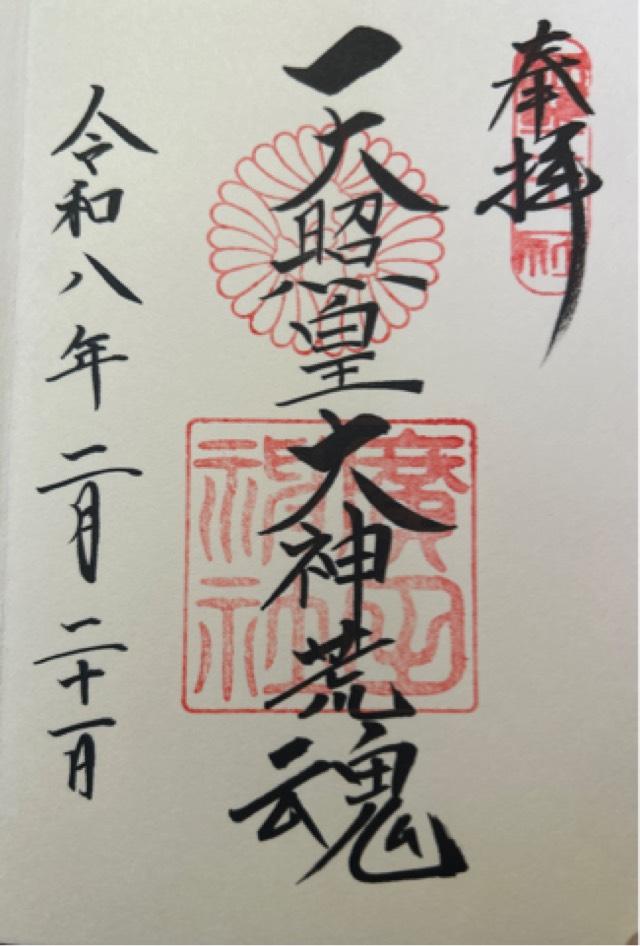 奉拝
天照皇大神荒魂
廣田神社
令和八年二月二十一日